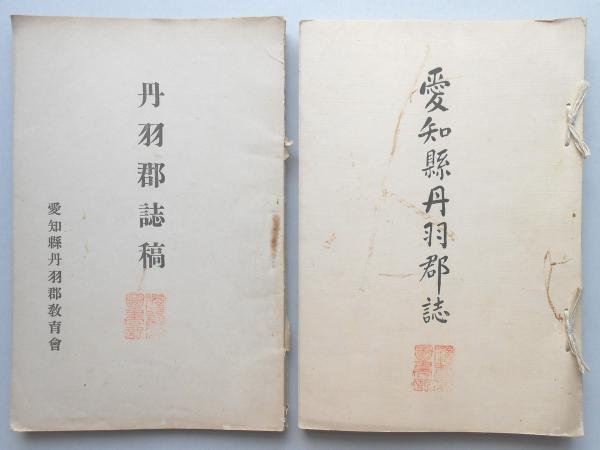 丹羽郡誌稿
愛知縣丹羽郡教育會
愛知縣丹羽郡誌